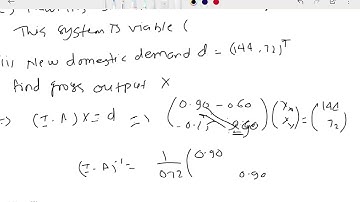 This system is viable (
iii) New domestic demand d = (144, 72)^T
find gross output X
=) (I-A) X = d =) (0.90 -0.60 / -0.15) (x_m / x_y) = (144 / 72)
(I-A)^-1 = 1/0.72 (0.90 / 0.90